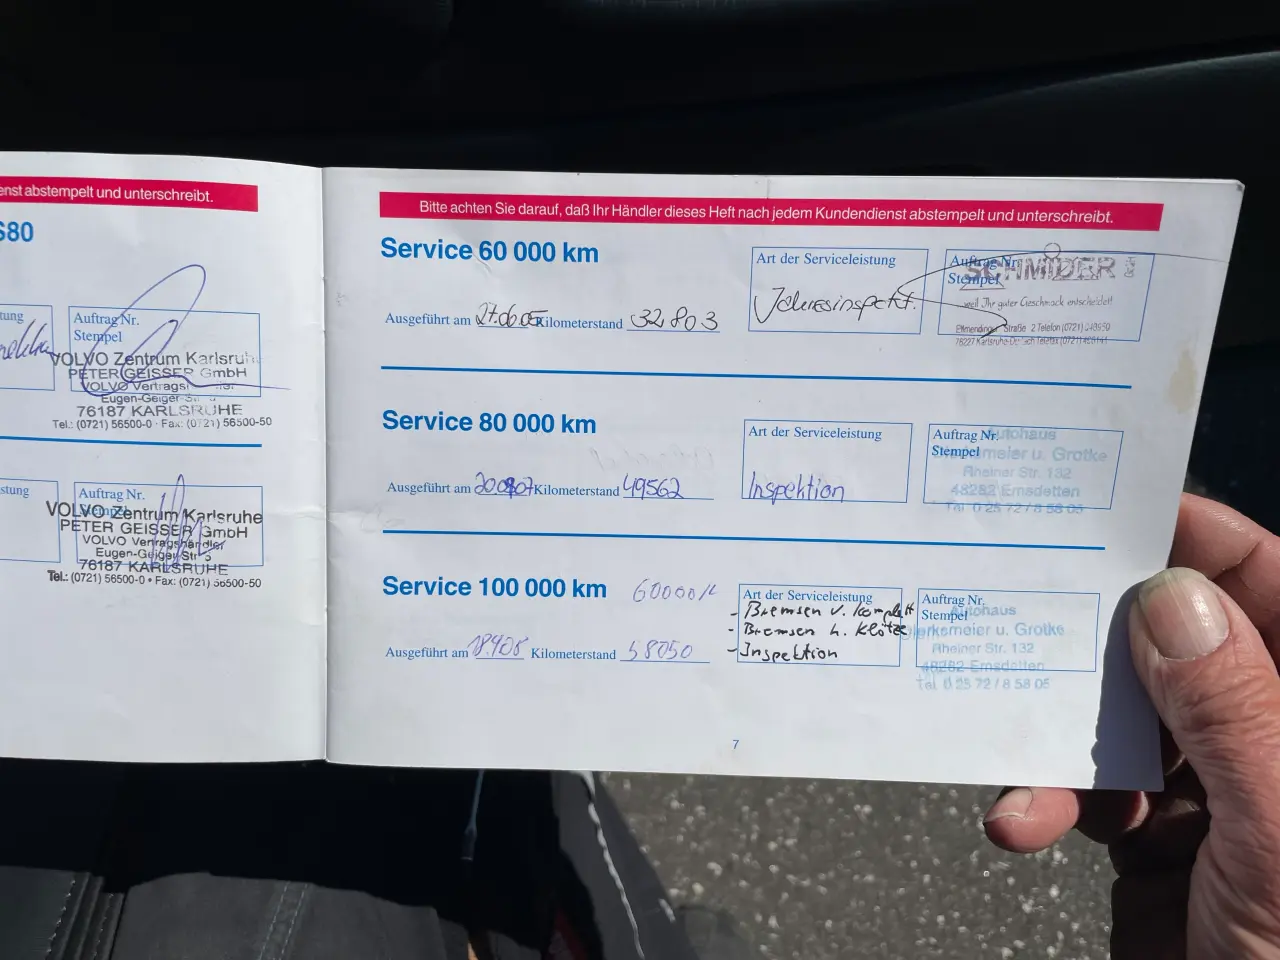 enst abstempelt und unterschreibt.
S80
tung
Auftrag Nr.
Stempel
VOLVO Zentrum Karlsruh
PETER GEISSER GmbH
VOLVO Vertrags
Eugen-Geiger-St
76187 KARLSRUHE
Tel.: (0721) 56500-0 · Fax: (0721) 56500-50
stung
Auftrag Nr.
Stempel
VOLVO Zentrum Karlsruhe
PETER GEISSER GmbH
VOLVO Vertragshändler
Eugen-Geiger-Str 5
76187 KARLSRUHE
Tel.: (0721) 56500-0 • Fax: (0721) 56500-50
Bitte achten Sie darauf, daß Ihr Händler dieses Heft nach jedem Kundendienst abstempelt und unterschreibt.
Service 60 000 km
Ausgeführt am 27.06.05 Kilometerstand 32803
Art der Serviceleistung
Jahresinspekt.
Auftrag Nr.
Stempel
SCHMIDER
weil Ihr guter Geschmack entscheidet!
Straße 2 Telefon (0721)
Service 80 000 km
Ausgeführt am Kilometerstand 49562
Art der Serviceleistung
Inspektion
Auftrag Nr.
Stempel
Autohaus
Dierksmeier u. Grotke
Rheiner Str. 132
48282 Emsdetten
Tel. 0 25 72 / 8 58 05
Service 100 000 km 60000
Ausgeführt am Kilometerstand 58050
Art der Serviceleistung
- Bremsen v. komplett
- Bremsen h. Klötze
- Inspektion
Auftrag Nr.
Stempel
Autohaus
Dierksmeier u. Grotke
Rheiner Str. 132
48282 Emsdetten
Tel. 0 25 72 / 8 58 05
7